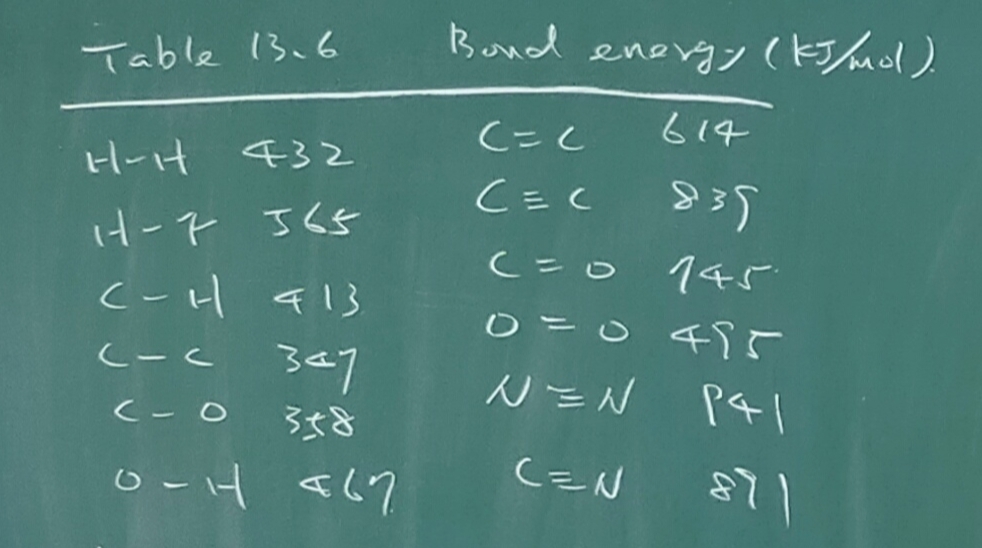 Table 13.6 Bond energy (kJ/mol).
H-H 432 C=C 614
H-F 565 C≡C 839
C-H 413 C=O 745
C-C 347 O=O 495
C-O 358 N≡N 941
O-H 467 C≡N 891